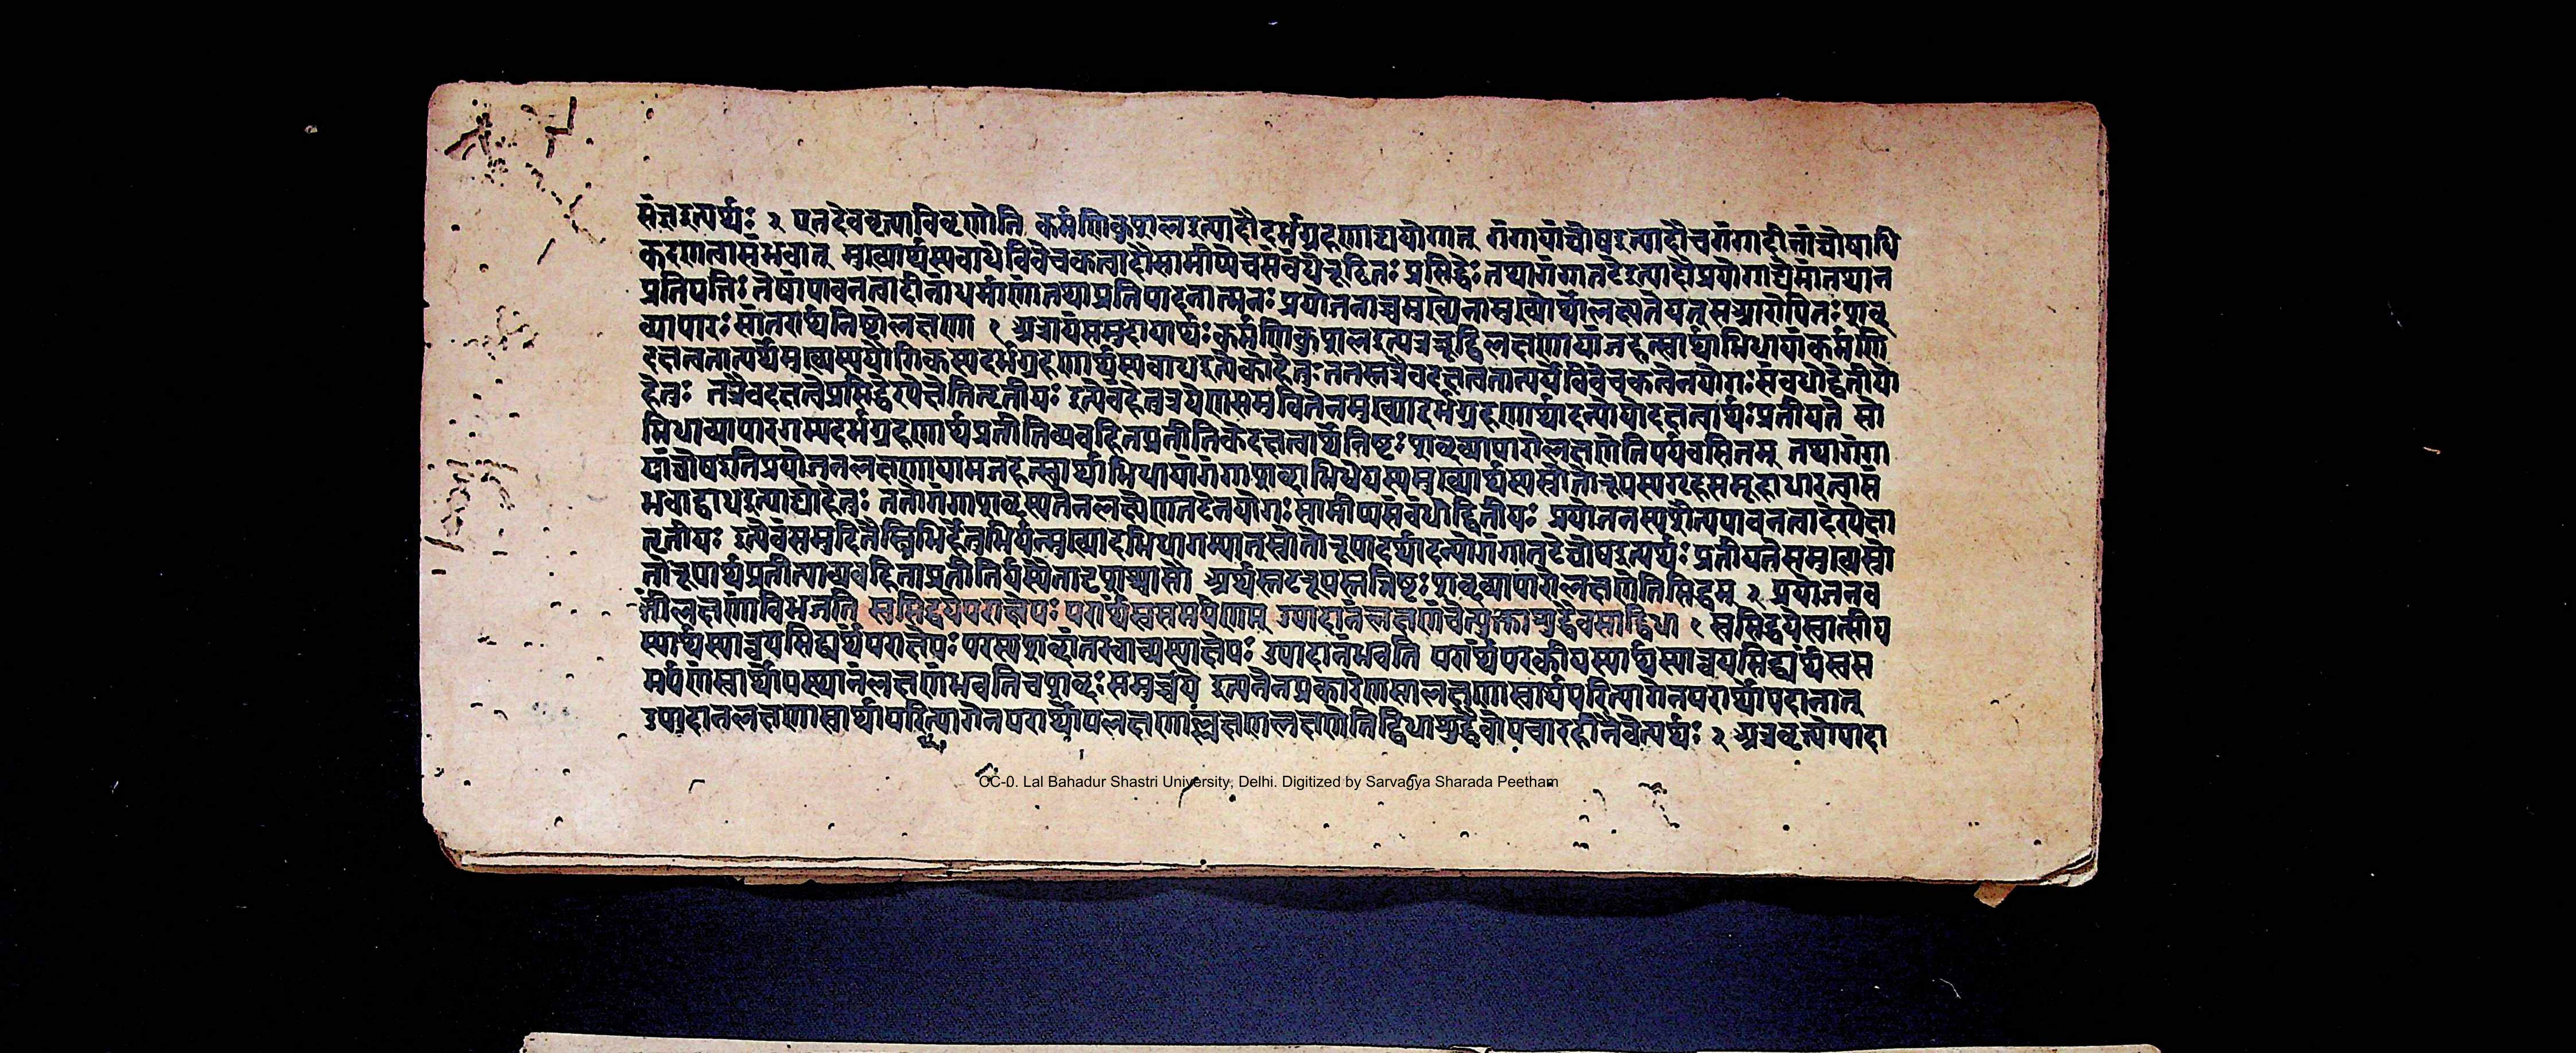 संज्ञइत्यर्थः २ एतदेववृत्त्याविवृणोति कर्मणिकुशलइत्यादौदर्भग्रहणाद्ययोगात् गंगायांघोषइत्यादौचगंगादीनांघोषाधि
करणत्वासंभवात् मुख्यार्थस्यबाधेविवेचकत्वादौसामीप्येचसंबंधेरूढितः प्रसिद्धेः तथागंगातटेइत्यादौप्रयोगाद्येषांनतथान
प्रतिपत्तिः तेषांपावनत्वादीनांधर्माणांतथाप्रतिपादनात्मनः प्रयोजनाच्चमुख्येनामुख्योर्थोलक्ष्यतेयत्सआरोपितः शब्द
व्यापारः सांतरार्थनिष्ठोलक्षणा १ अत्रायंसमुदायार्थः कर्मणिकुशलइत्यत्ररूढिलक्षणायांजहत्स्वार्थाभिधायांकर्मणि
दक्षत्वतात्पर्येमुख्यस्ययौगिकस्यदर्भग्रहणार्थस्यबाधइत्येकोहेतुः ततस्तत्रैवदक्षत्वतात्पर्येविवेचकत्वेनयोगः संबंधोद्वितीयो
हेतुः तत्रैवदक्षत्वेप्रसिद्धेरपेक्षेतितृतीयः इत्येवंहेतुत्रयेणसमुचितेनमुख्याद्दर्भग्रहणार्थादन्योयोदक्षत्वार्थः प्रतीयते सो
भिधाव्यापारगम्यदर्भग्रहणार्थप्रतीतिव्यवहितप्रतीतिकेदक्षत्वार्थेनिष्ठः शब्दव्यापारोलक्षणेतिपर्यवसितम् तथागंगा
यांघोषइतिप्रयोजनलक्षणायामजहत्स्वार्थाभिधायांगंगाशब्दाभिधेयस्यमुख्यार्थस्यस्रोतोरूपस्यगृहसमूहाधारत्वासं
भवाद्बाधइत्याद्योहेतुः ततोगंगाशब्दस्यतेनलक्ष्येणतटेनयोगः सामीप्यसंबंधोद्वितीयः प्रयोजनस्यशैत्यपावनत्वादेरपेक्षा
तृतीयः इत्येवंसमुदितैस्त्रिभिर्हेतुभिर्यन्मुख्यादभिधागम्यात्स्रोतोरूपादर्थादन्योगंगातटेघोषइत्यर्थः प्रतीयतेसमुख्यस्रो
तोरूपार्थप्रतीत्याव्यवहिताप्रतीतिर्यस्यैतादृशश्चासौ अर्थस्तटरूपस्तन्निष्ठः शब्दव्यापारोलक्षणेतिसिद्धम् २ प्रयोजनव
तींलक्षणांविभजति स्वसिद्धयेपराक्षेपः परार्थंस्वसमर्पणम् उपादानंलक्षणंचेत्युक्ताशुद्धैवसाद्विधा १ स्वसिद्धयेस्वात्मीय
स्यार्थस्यान्वयसिद्ध्यर्थंपराक्षेपः परस्यशब्दांतरवाच्यस्याक्षेपः उपादानंभवति परार्थंपरकीयस्यार्थस्यान्वयसिद्ध्यर्थंस्वस
मर्पणंस्वार्थोपस्थानंलक्षणंभवतिचशब्दः समुच्चये इत्यनेनप्रकारेणसालक्षणास्वार्थपरित्यागेनपरार्थोपादानात्
उपादानलक्षणास्वार्थापरित्यागेनपरार्थोपलक्षणाल्लक्षणलक्षणेतिद्विधाशुद्धैवोपचारहीनैवेत्यर्थः २ अत्रवृत्त्योपादा
CC-0. Lal Bahadur Shastri University, Delhi. Digitized by Sarvagya Sharada Peetham